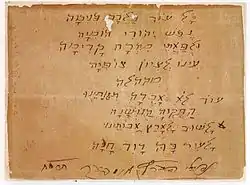 כל עוד בלבב פנימה
נפש יהודי הומיה
ולפאתי מזרח קדימה
עינו לציון צופיה
מקהלה
עוד לא אבדה תקותנו
התקוה הנושנה
לשוב לארץ אבותינו
לעיר בה דוד חנה